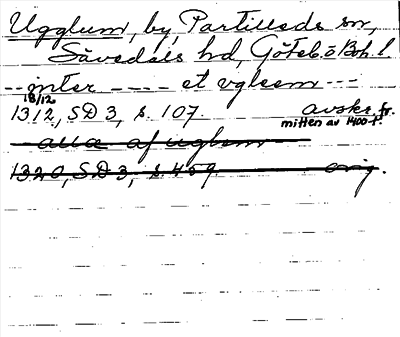 Ugglum, by, Partilleds sn,
Sävedals hd, Göteb. o Boh. l.
-- inter ---- et vgleem ---
18/12
1312, SD 3, s. 107. avskr. fr.
mitten av 1400-t.
alla af uglom
1320, SD 3, s. 459 orig.